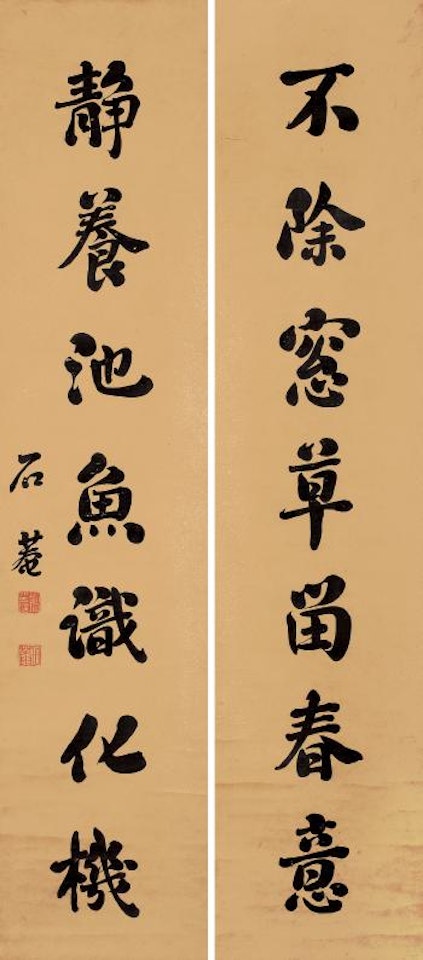 不除窓草畱春意
静養池魚識化機
石菴